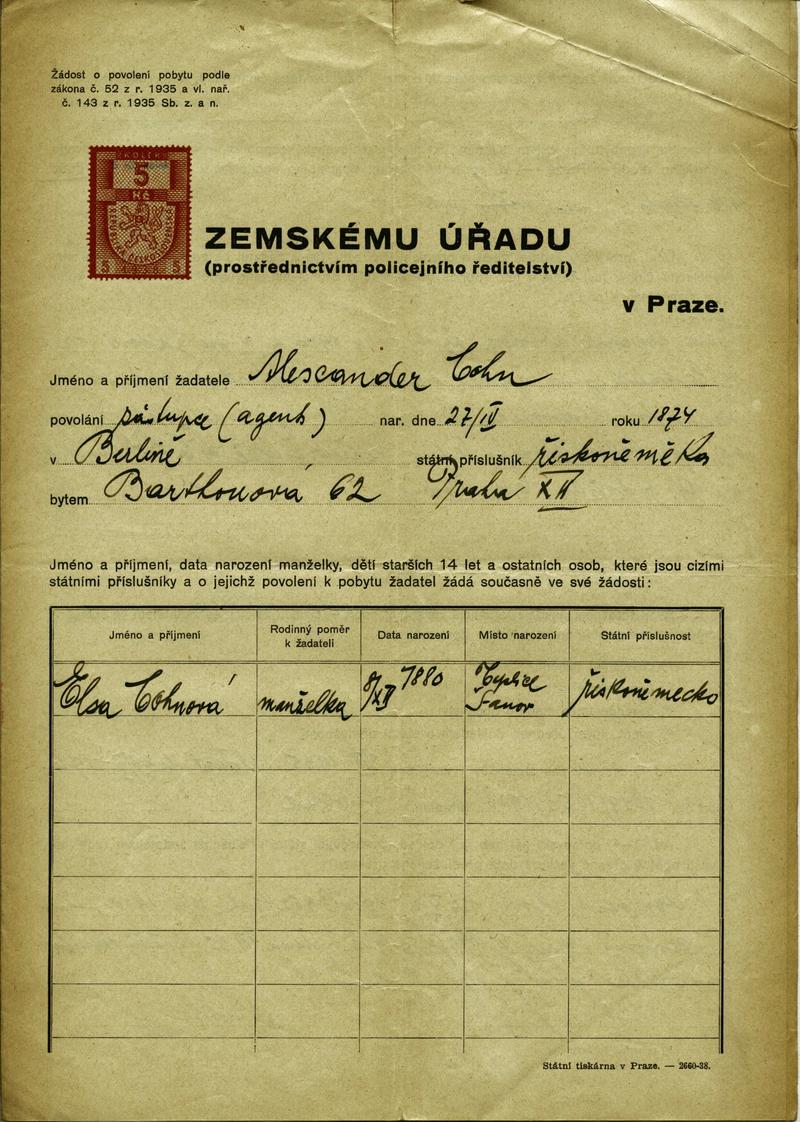 Žádost o povolení pobytu podle
zákona č. 52 z r. 1935 a vl. nař.
č. 143 z r. 1935 Sb. z. a n.
KOLEK
5
Kč
5 5
ZEMSKÉMU ÚŘADU
(prostřednictvím policejního ředitelství)
v Praze.
Jméno a příjmení žadatele Alexander Cohn
povolání zástupce (agent) nar. dne 27/IV roku 1874
v Berlíně státní příslušník řískoněmecko
bytem Barthouová 62 Praha XII
Jméno a příjmení, data narození manželky, dětí starších 14 let a ostatních osob, které jsou cizími
státními příslušníky a o jejichž povolení k pobytu žadatel žádá současně ve své žádosti:
Jméno a příjmení Rodinný poměr k žadateli Data narození Místo narození Státní příslušnost
Elsa Cohnová manželka 8/XII 1880 Teplice Šanov řískoněmecko
Státní tiskárna v Praze. — 2660-38.